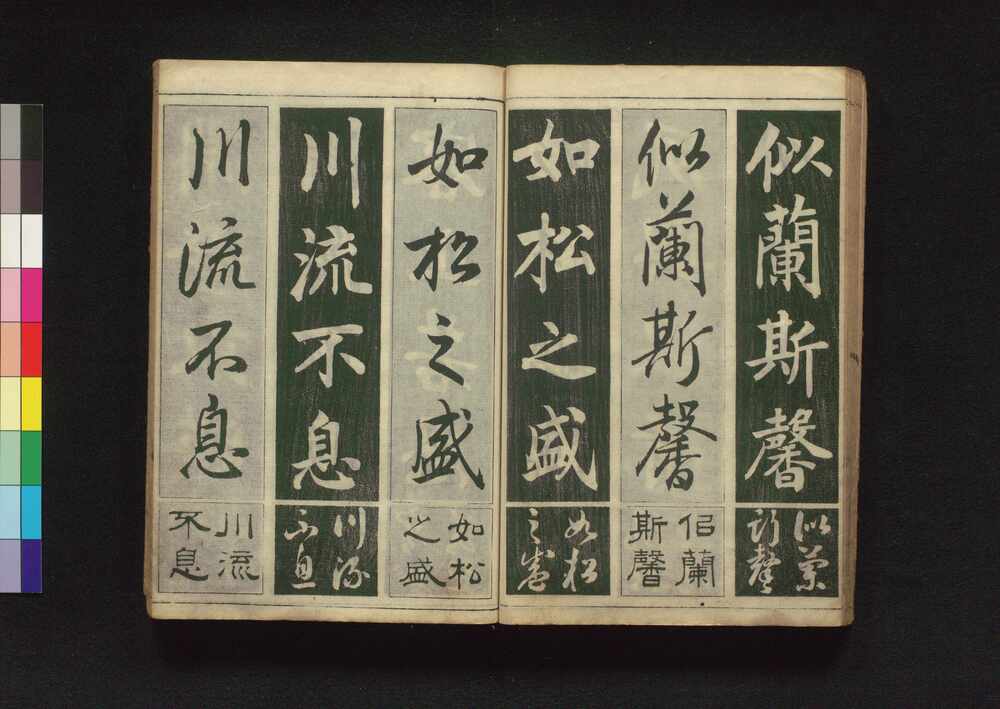 似蘭斯馨
似蘭
斯馨
似蘭斯馨
佀蘭
斯馨
如松之盛
如松
之盛
如松之盛
如松
之盛
川流不息
川流
不息
川流不息
川流
不息